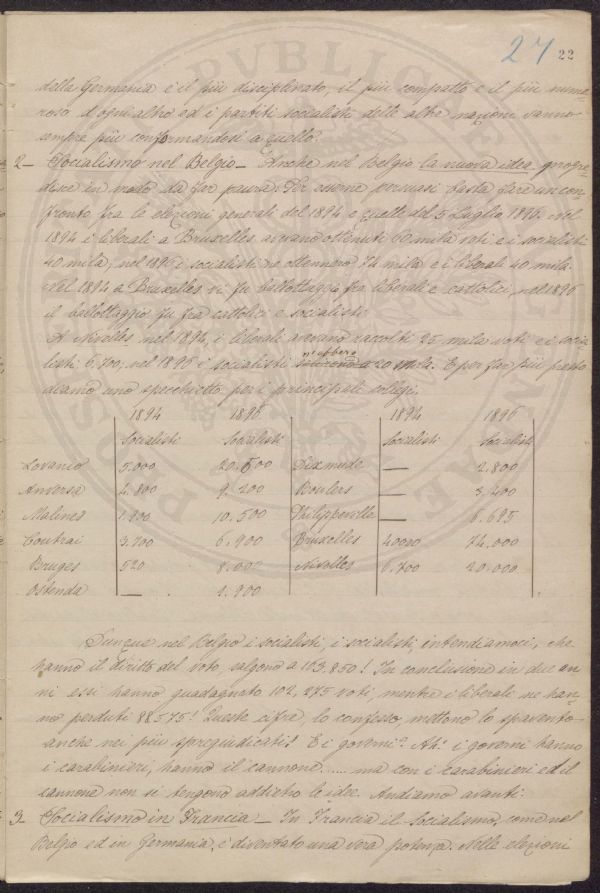 27 22
della Germania è il più disciplinato, il più compatto e il più nume-
roso d'ogni altro ed i partiti socialisti delle altre nazioni vanno
sempre più conformandosi a quello.
2_ Socialismo nel Belgio_ Anche nel Belgio la nuova idea progre-
disce in modo da far paura. Per esserne persuasi basta fare un con-
fronto fra le elezioni generali del 1894 e quelle del 5 Luglio 1896. nel
1894 i liberali a Bruxelles avevano ottenuti 60 mila voti e i socialisti
40 mila; nel 1896 i socialisti ne ottennero 74 mila e i liberali 40 mila.
Nel 1894 a Bruxelles vi fu ballottaggio fra liberali e cattolici, nel 1896
il ballottaggio fu fra cattolici e socialisti.
A Nivelles nel 1894, i liberali avevano raccolti 25 mila voti e i socia-
listi 6.700; nel 1896 i socialisti n'ebbero 20 mila. E per far più presto
diamo uno specchietto per i principali collegi.
1894 1896 1894 1896
Socialisti Socialisti Socialisti Socialisti
Lovanio 5.000 20.500 Dixmude — 2.800
Anversa 4.800 9.200 Roulers — 3.400
Malines 1.900 10.500 Philippeville — 6.695
Courtrai 3.700 6.900 Bruxelles 40000 74.000
Bruges 520 8.000 Nivelles 6.700 20.000
Ostenda — 1.900
Dunque nel Belgio i socialisti, i socialisti, intendiamoci, che
hanno il diritto del voto, salgono a 163.850! In conclusione in due an-
ni essi hanno guadagnato 102,275 voti, mentre i liberali ne han-
no perduti 88575! Queste cifre, lo confesso, mettono lo spavento
anche nei più spregiudicati! E i governi? Ah! i governi hanno
i carabinieri, hanno il cannone..... ma con i carabinieri ed il
cannone non si tengono addietro le idee. Andiamo avanti.
3_ Socialismo in Francia_ In Francia il Socialismo, come nel
Belgio ed in Germania, è diventato una vera potenza. Nelle elezioni